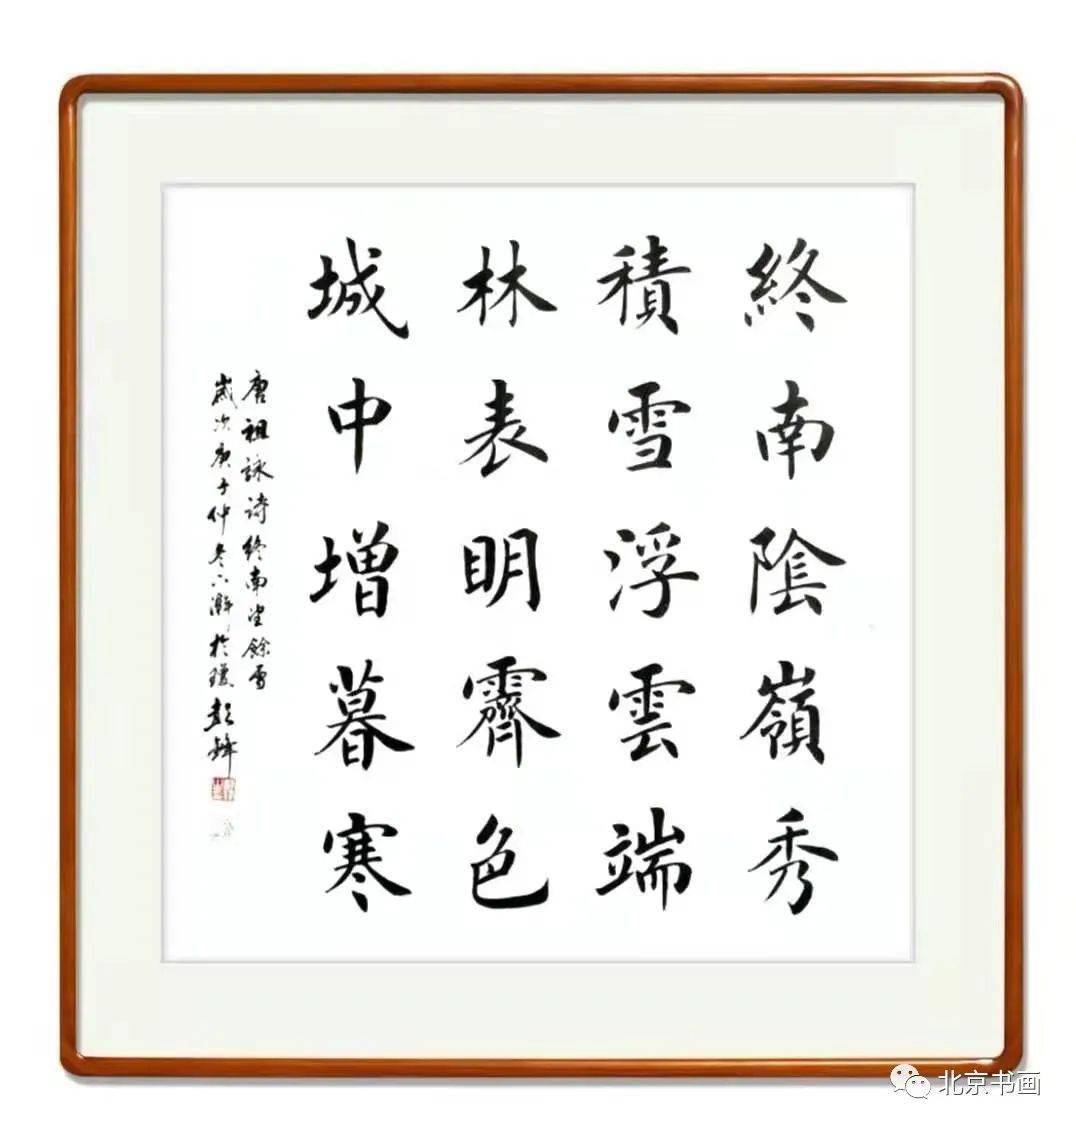 終南陰嶺秀
積雪浮雲端
林表明霽色
城中增暮寒
唐祖詠诗終南望餘雪
歲次庚子仲冬六澣於 彭鋒
北京书画